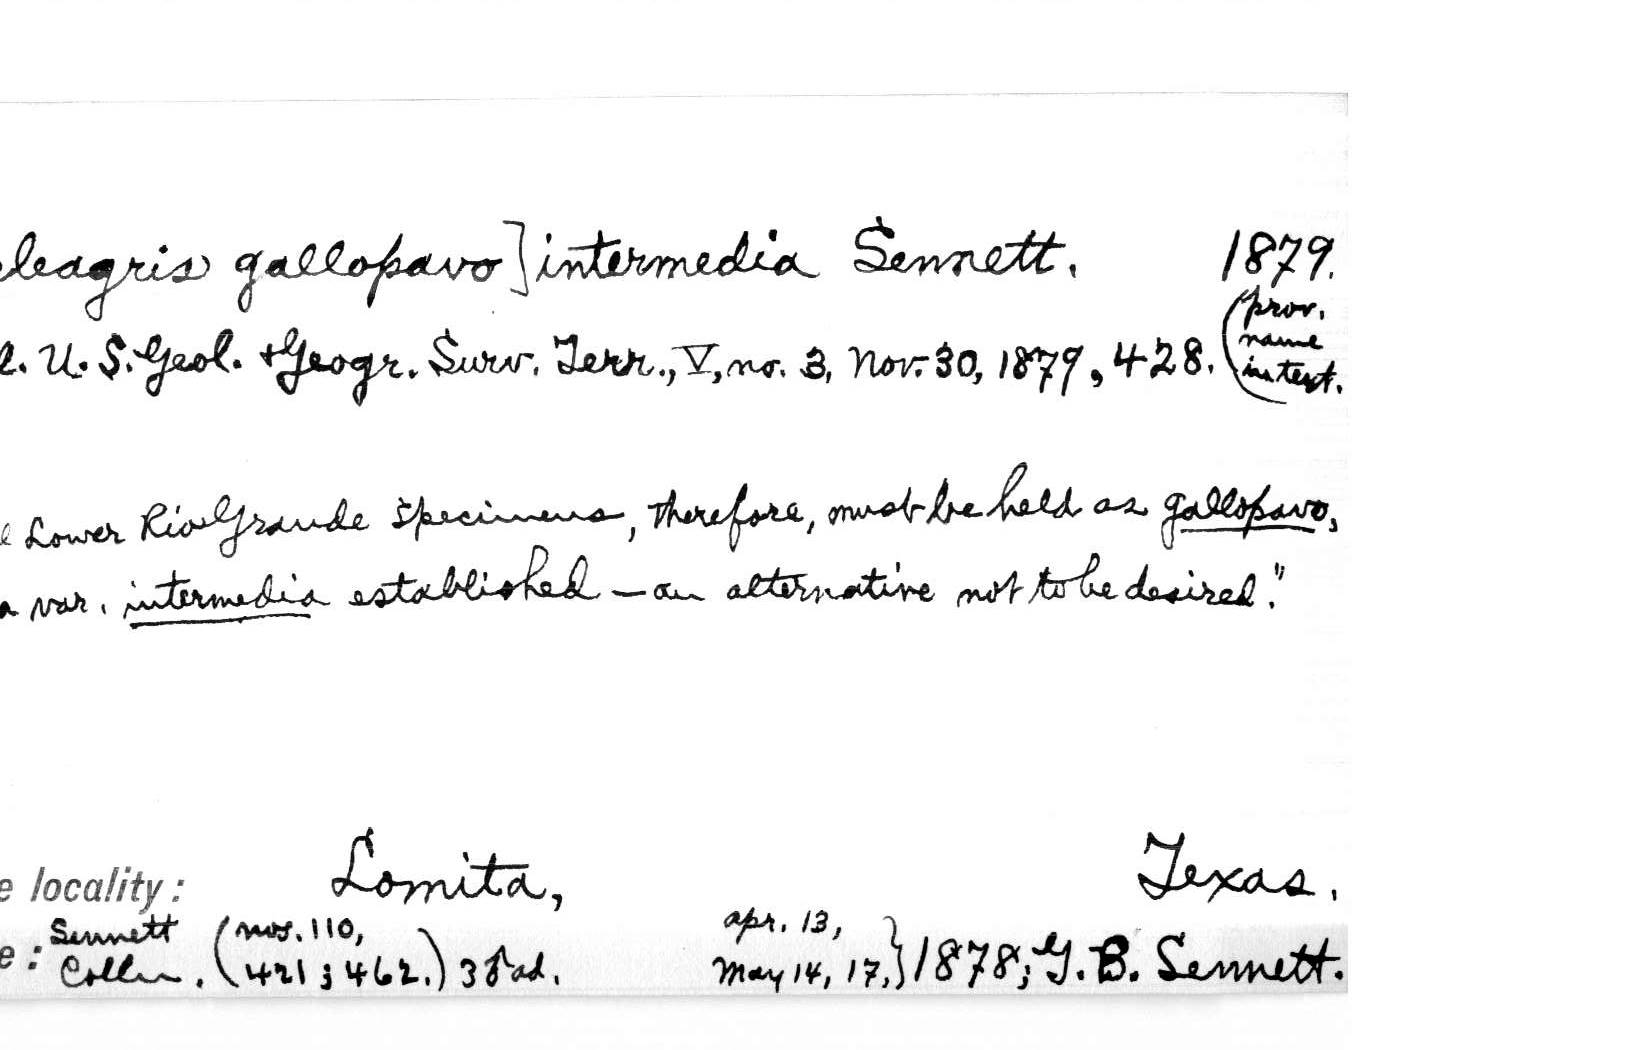 leagris gallopavo] intermedia Sennett. 1879.
l. U.S. Geol. + Geogr. Surv. Terr., V, no. 3, Nov. 30, 1879, 428. (prov.
name
in text.
Lower Rio Grande specimens, therefore, must be held as gallopavo,
a var. intermedia established — an alternative not to be desired."
e locality: Lomita, Texas.
e: Sennett Colln. (nos. 110, 421; 462.) 3♂ad. Apr. 13, May 14, 17,} 1878; G. B. Sennett.